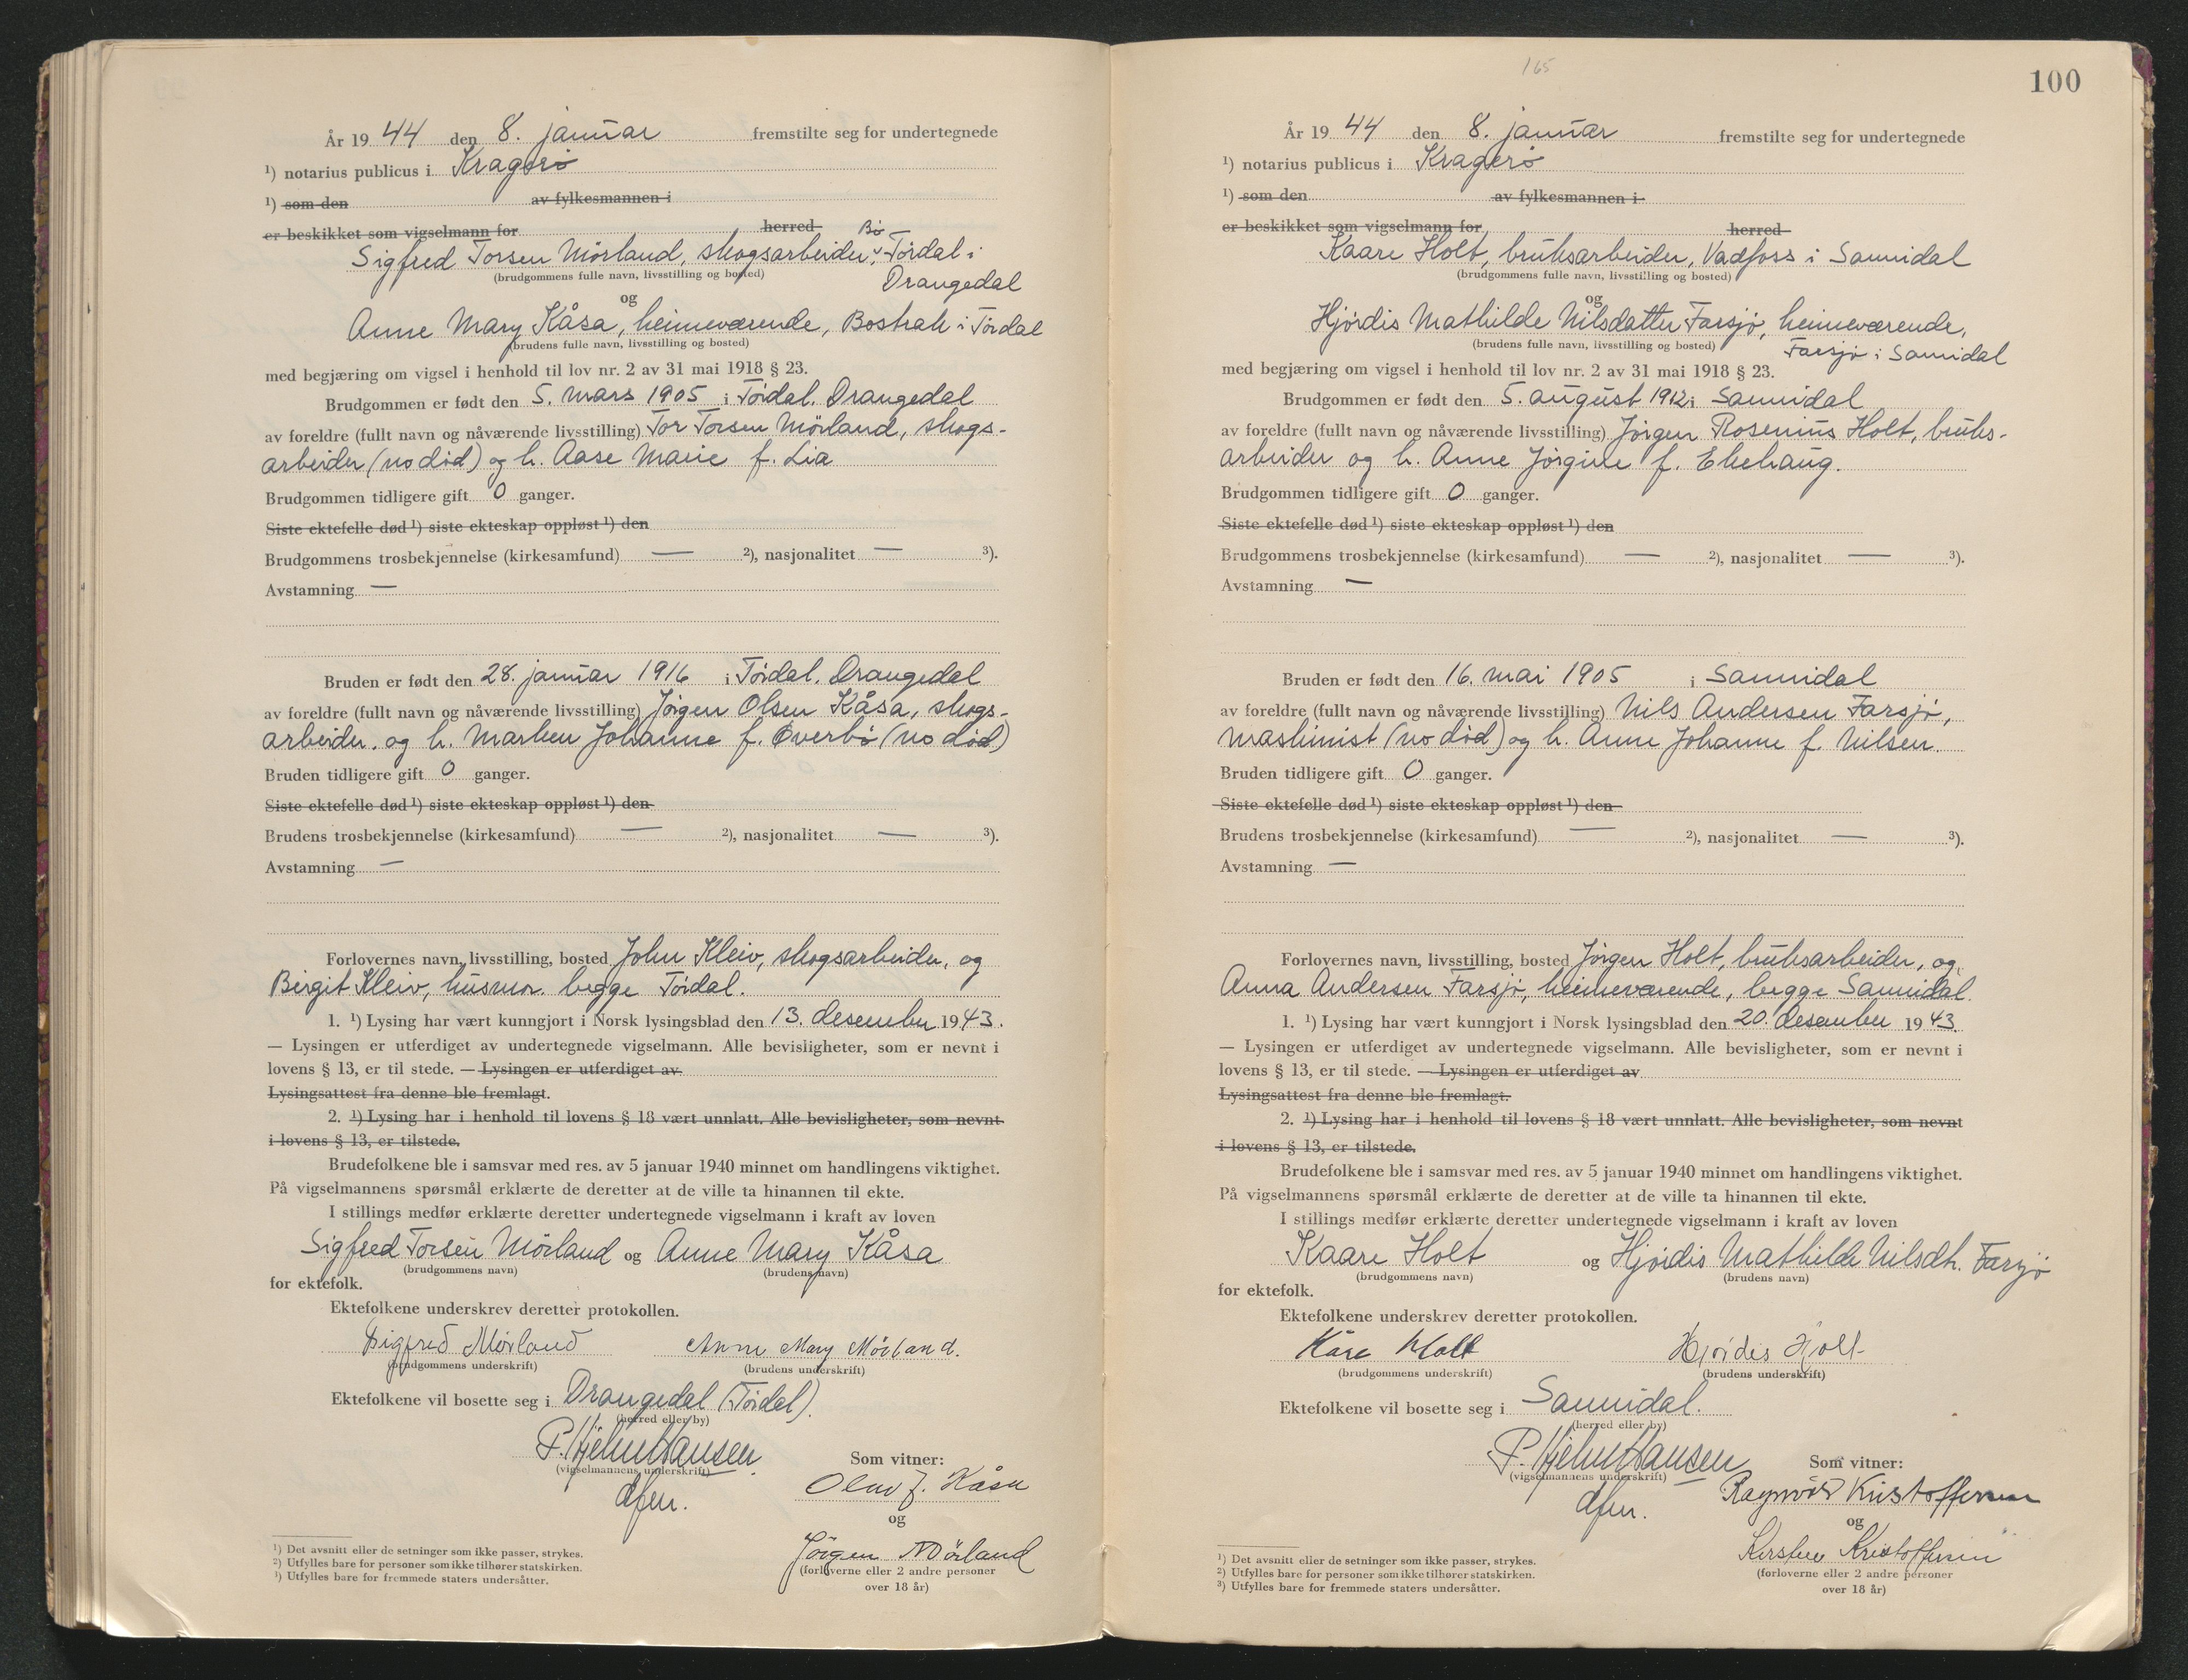 År 19 44 den 8. januar fremstilte seg for undertegnede
¹) notarius publicus i Kragerø
¹) som den av fylkesmannen i
er beskikket som vigselmann for herred
Bø
Sigfred Torsen Mörland, skogsarbeider, Tördal i
(brudgommens fulle navn, livsstilling og bosted)
Drangedal
og
Anne Mary Kåsa, heimeværende, Bostrak i Tördal
(brudens fulle navn, livsstilling og bosted)
med begjæring om vigsel i henhold til lov nr. 2 av 31 mai 1918 § 23.
Brudgommen er født den 5. mars 1905 i Tördal. Drangedal
av foreldre (fullt navn og nåværende livsstilling) Tor Torsen Mörland, skogs-
arbeider (no död) og h. Aase Marie f. Lia
Brudgommen tidligere gift 0 ganger.
Siste ektefelle død ¹) siste ekteskap oppløst ¹) den
Brudgommens trosbekjennelse (kirkesamfund) — ²), nasjonalitet — ³).
Avstamning —
Bruden er født den 28. januar 1916 i Tördal. Drangedal
av foreldre (fullt navn og nåværende livsstilling) Jörgen Olsen Kåsa, skogs-
arbeider. og h. Marken Johanne f. Överbö (no död)
Bruden tidligere gift 0 ganger.
Siste ektefelle død ¹) siste ekteskap oppløst ¹) den
Brudens trosbekjennelse (kirkesamfund) — ²), nasjonalitet — ³).
Avstamning —
Forlovernes navn, livsstilling, bosted John Kleiv, skogsarbeider, og
Birgit Kleiv, husmor. begge Tördal.
1. ¹) Lysing har vært kunngjort i Norsk lysingsblad den 13. desember 1943.
— Lysingen er utferdiget av undertegnede vigselmann. Alle bevisligheter, som er nevnt i
lovens § 13, er til stede. — Lysingen er utferdiget av
Lysingsattest fra denne ble fremlagt.
2. ¹) Lysing har i henhold til lovens § 18 vært unnlatt. Alle bevisligheter, som nevnt
i lovens § 13, er tilstede.
Brudefolkene ble i samsvar med res. av 5 januar 1940 minnet om handlingens viktighet.
På vigselmannens spørsmål erklærte de deretter at de ville ta hinannen til ekte.
I stillings medfør erklærte deretter undertegnede vigselmann i kraft av loven
Sigfred Torsen Mörland og Anne Mary Kåsa
(brudgommens navn) (brudens navn)
for ektefolk.
Ektefolkene underskrev deretter protokollen.
Sigfred Mörland Anne Mary Mörland.
(brudgommens underskrift) (brudens underskrift)
Ektefolkene vil bosette seg i Drangedal (Tördal).
(herred eller by)
P. HjelmHansen
(vigselmannens underskrift)
dfm.
Som vitner:
Olav J. Kåsa
og
Jörgen Mörland
(forloverne eller 2 andre personer
over 18 år)
¹) Det avsnitt eller de setninger som ikke passer, strykes.
²) Utfylles bare for personer som ikke tilhører statskirken.
³) Utfylles bare for fremmede staters undersåtter.
165
100
År 19 44 den 8. januar fremstilte seg for undertegnede
¹) notarius publicus i Kragerö
¹) som den av fylkesmannen i
er beskikket som vigselmann for herred
Kaare Holt, bruksarbeider, Vadfoss i Sannidal
(brudgommens fulle navn, livsstilling og bosted)
og
Hjördis Mathilde Nilsdatter Farsjö, heimeværende,
(brudens fulle navn, livsstilling og bosted)
Farsjö i Sannidal
med begjæring om vigsel i henhold til lov nr. 2 av 31 mai 1918 § 23.
Brudgommen er født den 5. august 1912 i Sannidal
av foreldre (fullt navn og nåværende livsstilling) Jörgen Rosenius Holt, bruks-
arbeider og h. Anne Jörgine f. Ekehaug.
Brudgommen tidligere gift 0 ganger.
Siste ektefelle død ¹) siste ekteskap oppløst ¹) den
Brudgommens trosbekjennelse (kirkesamfund) — ²), nasjonalitet — ³).
Avstamning —
Bruden er født den 16. mai 1905 i Sannidal
av foreldre (fullt navn og nåværende livsstilling) Nils Andersen Farsjö,
maskinist (no död) og h. Anne Johanne f. Nilsen.
Bruden tidligere gift 0 ganger.
Siste ektefelle død ¹) siste ekteskap oppløst ¹) den
Brudens trosbekjennelse (kirkesamfund) — ²), nasjonalitet — ³).
Avstamning —
Forlovernes navn, livsstilling, bosted Jörgen Holt, bruksarbeider, og
Anna Andersen Farsjö, heimeværende, begge Sannidal.
1. ¹) Lysing har vært kunngjort i Norsk lysingsblad den 20. desember 1943
— Lysingen er utferdiget av undertegnede vigselmann. Alle bevisligheter, som er nevnt i
lovens § 13, er til stede. — Lysingen er utferdiget av
Lysingsattest fra denne ble fremlagt.
2. ¹) Lysing har i henhold til lovens § 18 vært unnlatt. Alle bevisligheter, som nevnt
i lovens § 13, er tilstede.
Brudefolkene ble i samsvar med res. av 5 januar 1940 minnet om handlingens viktighet.
På vigselmannens spørsmål erklærte de deretter at de ville ta hinannen til ekte.
I stillings medfør erklærte deretter undertegnede vigselmann i kraft av loven
Kaare Holt og Hjördis Mathilde Nilsdtr. Farsjö
(brudgommens navn) (brudens navn)
for ektefolk.
Ektefolkene underskrev deretter protokollen.
Kåre Holt Hjördis Holt
(brudgommens underskrift) (brudens underskrift)
Ektefolkene vil bosette seg i Sannidal.
(herred eller by)
P. HjelmHansen
(vigselmannens underskrift)
dfm.
Som vitner:
Ragnvald Kristoffersen
og
Kirsten Kristoffersen
(forloverne eller 2 andre personer
over 18 år)
¹) Det avsnitt eller de setninger som ikke passer, strykes.
²) Utfylles bare for personer som ikke tilhører statskirken.
³) Utfylles bare for fremmede staters undersåtter.